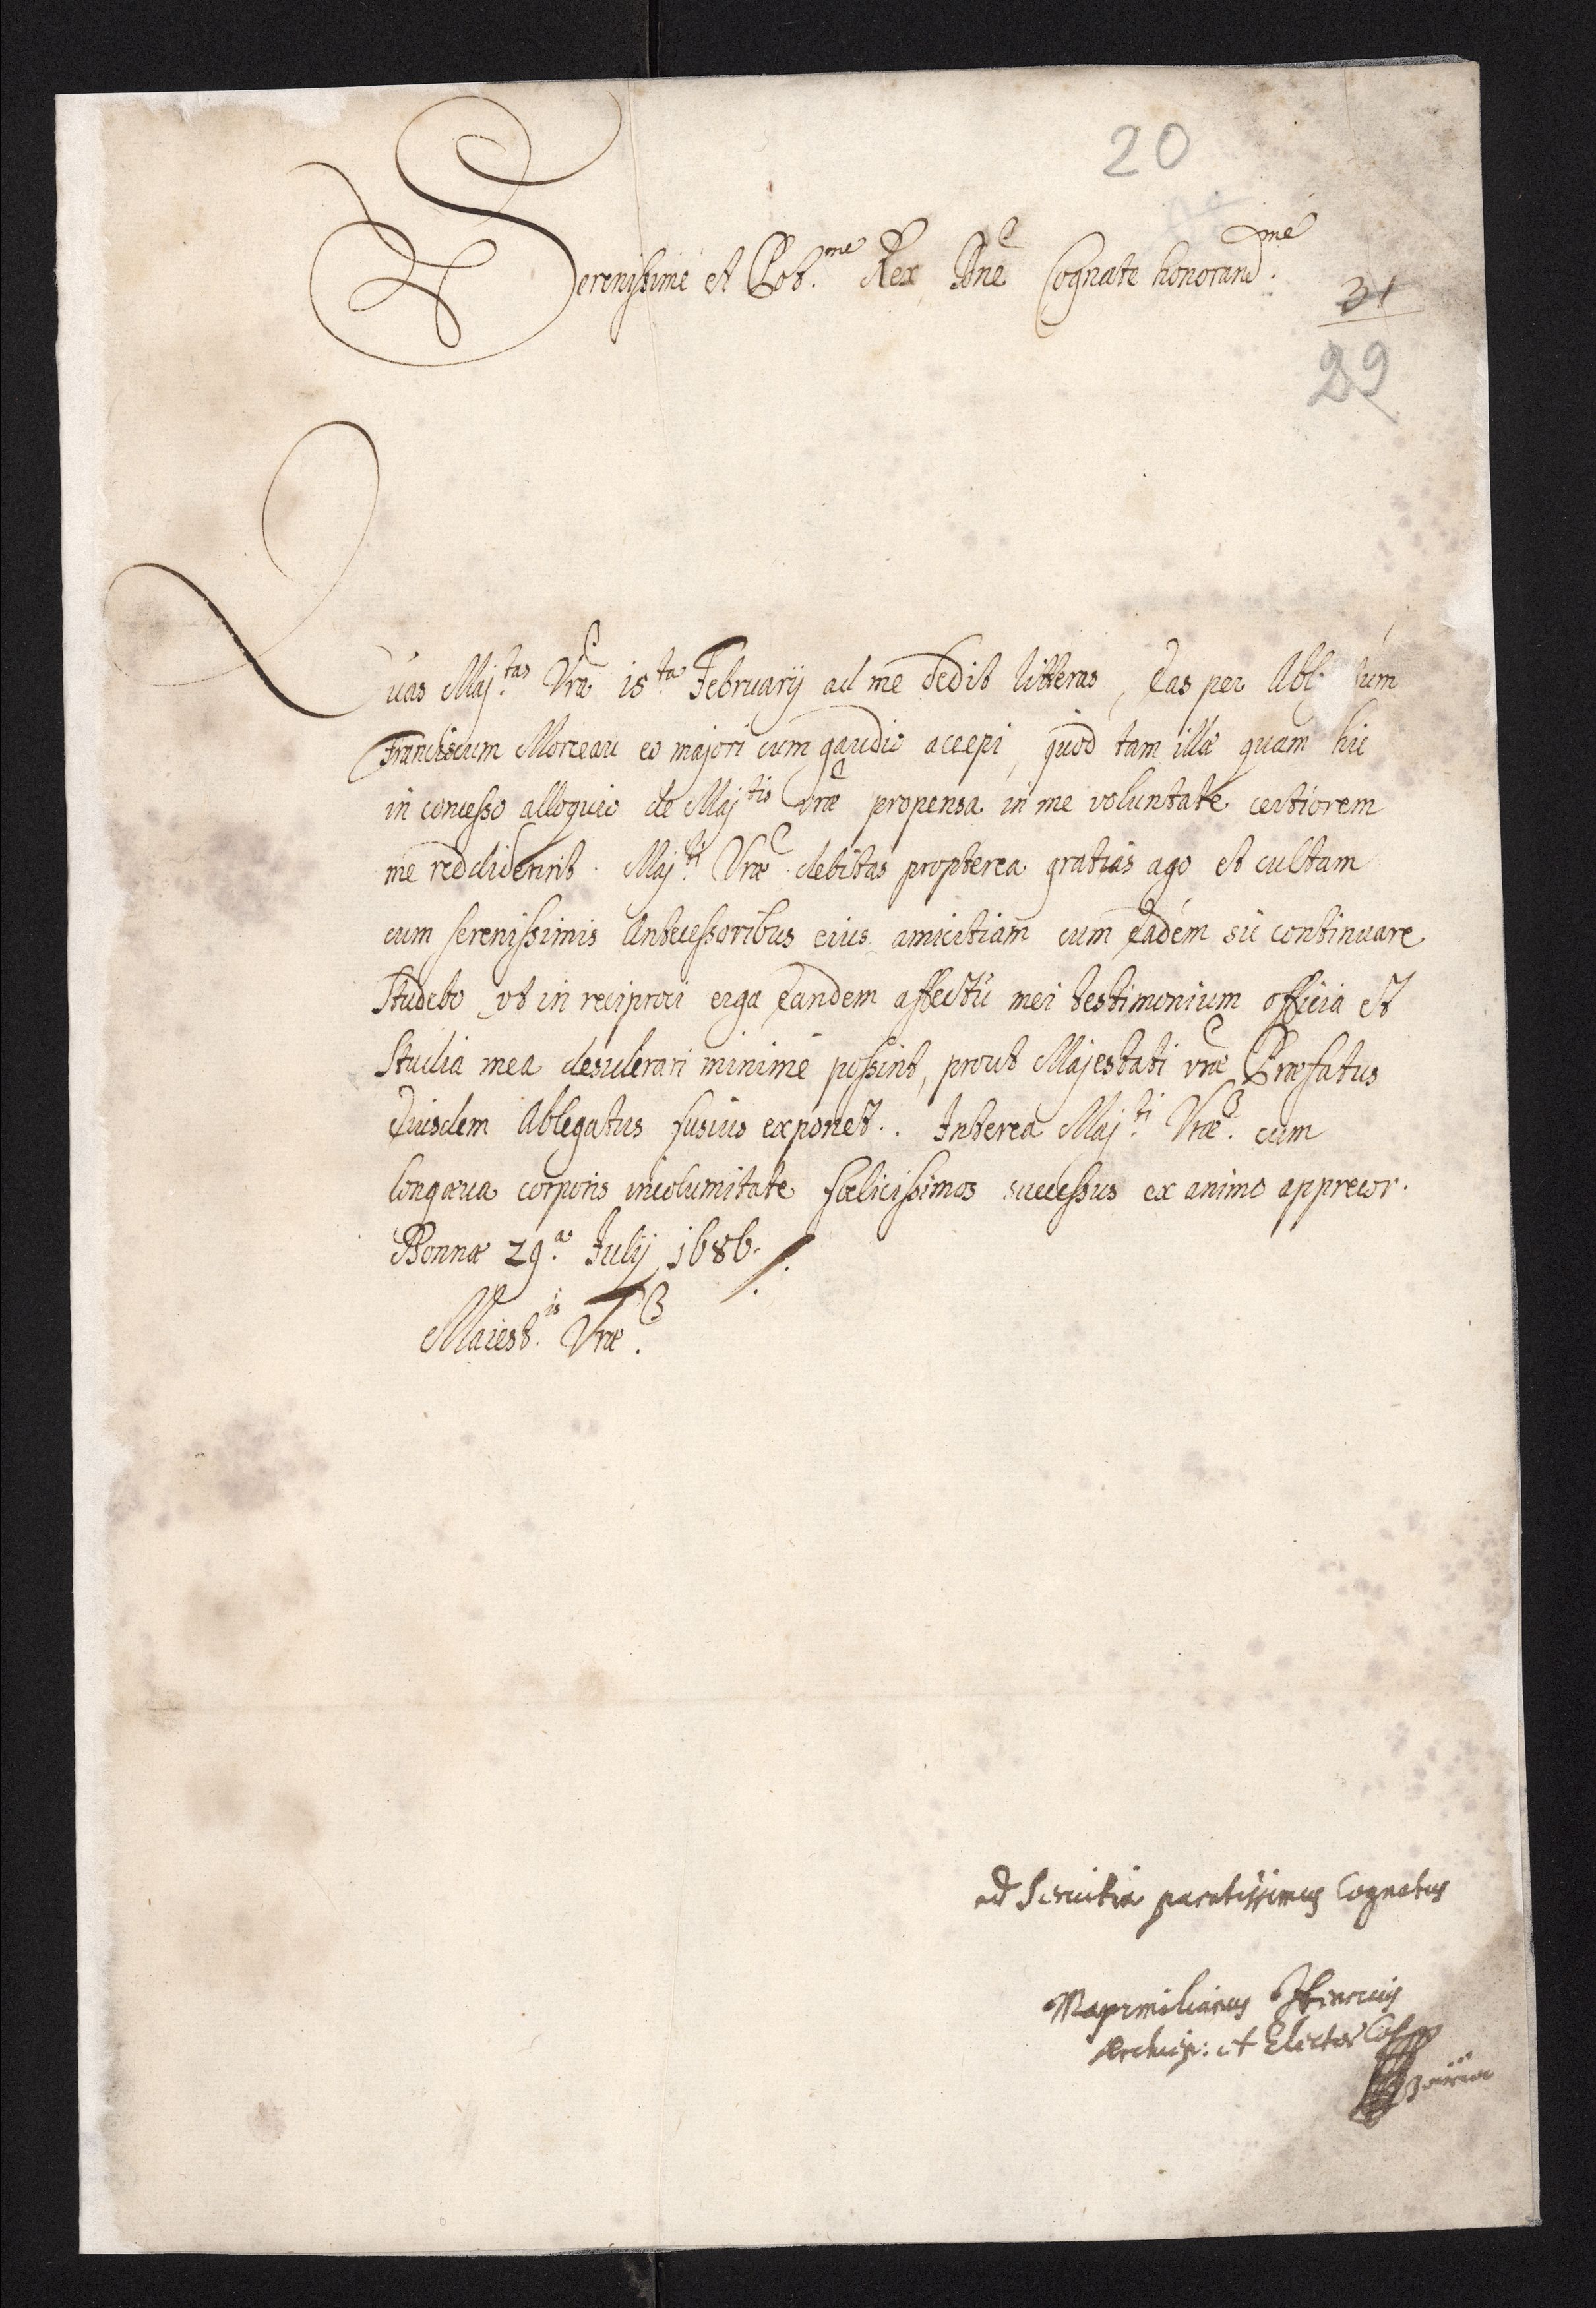 20
Serenissime et Pot.me Rex Dne Cognate honorand.me
31
29
Quas Maj.tas Vra 15.ta February ad me dedit litteras, Eas per Abl: tum
Franciscum Moreau eo majori cum gaudio accepi, quod tam illae quam hic
in concesso alloquio de Maj.tis vrae propensa in me voluntate certiorem
me reddiderint. Maj.ti Vrae debitas propterea gratias ago et cultam
cum serenissimis Antecessoribus eius amicitiam cum Eadem sic continuare
studebo vt in reciproci erga Eandem affectu mei testimonium officia et
studia mea desiderari minime possint, prout Majestati vrae Praefatus
Eiusdem Ablegatus fusius exponet. Interea Maj.ti Vrae. cum
longaeva corporis incolumitate foelicissimos successus ex animo apprecor.
Bonnae 29.a July 1686.
Maiest.is Vrae.
ad Servitia paratissimus Cognatus
Maximilianus Henricus
Archiep: et Elector Col